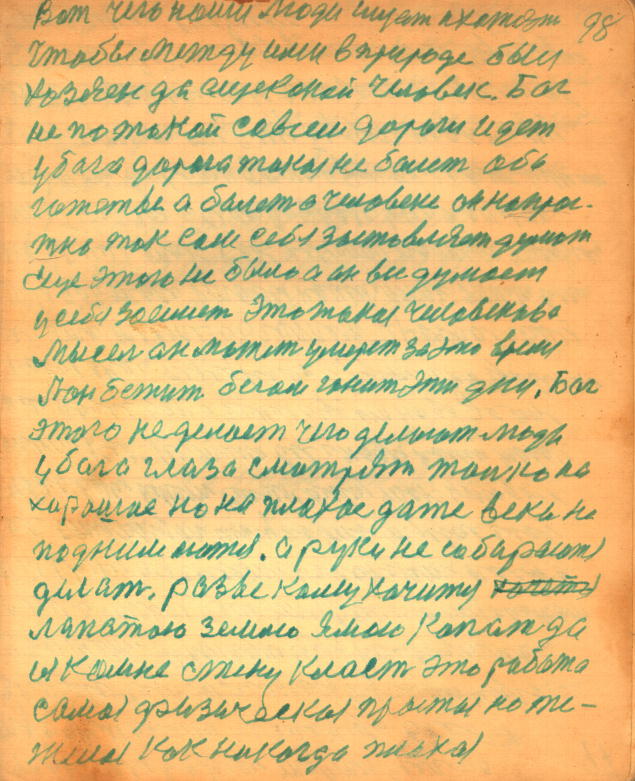 98
Вот чего наши люди ищут и хотят
чтобы между ими в природе был
хозяен да еще какой человек. Бог
не по такой совсем дороги идет
у бога дорога такая не болет обы
гатетва а болет о человеке он напрас-
тно так сам себя зоставляет думат
еще этого не было а он все думает
у себя займет это такая человекова
мысел он может умерет за это время
А он бежит бегом гонит эти дни. Бог
этого не делает чего делают люди
у бога глаза смотрят только на
харошае но на плохое даже века не
поднимаются. а руки не собарают
делат. разве кому хочится
лапатою землю ямою капат да
из камня стену класт это работа
самая физическая простая но тя-
желая как никогда плахая